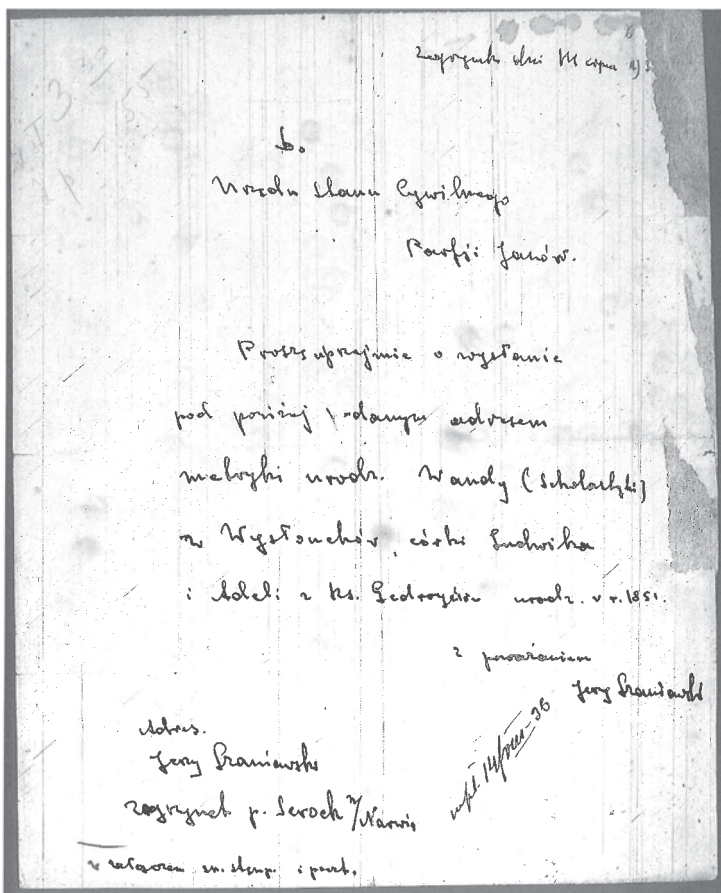 Zegrzynek dn
Do
Urzędu Stanu Cywilnego
Parfji Janów.
Proszę uprzejmie o wysłanie
pod poniżej podanym adresem
metryki urodz. Wandy (Scholastyki)
z Wysłouchów, córki Ludwika
i Adeli z Ks. Giedroyciów urodz. w r. 1851.
z poważaniem
Jerzy Szaniawski
Adres.
Jerzy Szaniawski
Zegrzynek p. Serock n/Narwią
wpł. 14/VIII-36
w załączeniu zn. stemp. i poczt.